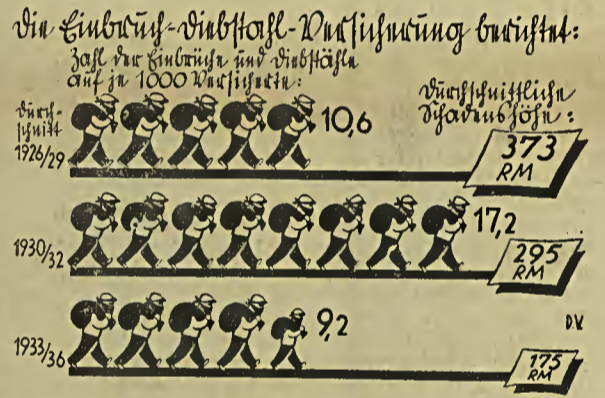 Die Einbruch-Diebstahl-Versicherung berichtet:
Zahl der Einbrüche und Diebstähle
auf je 1000 Versicherte:
Durchschnittliche
Schadenshöhe:
Durch-
schnitt
1926/29
10,6
373
RM
1930/32
17,2
295
RM
1933/36
9,2
175
RM
D.V.